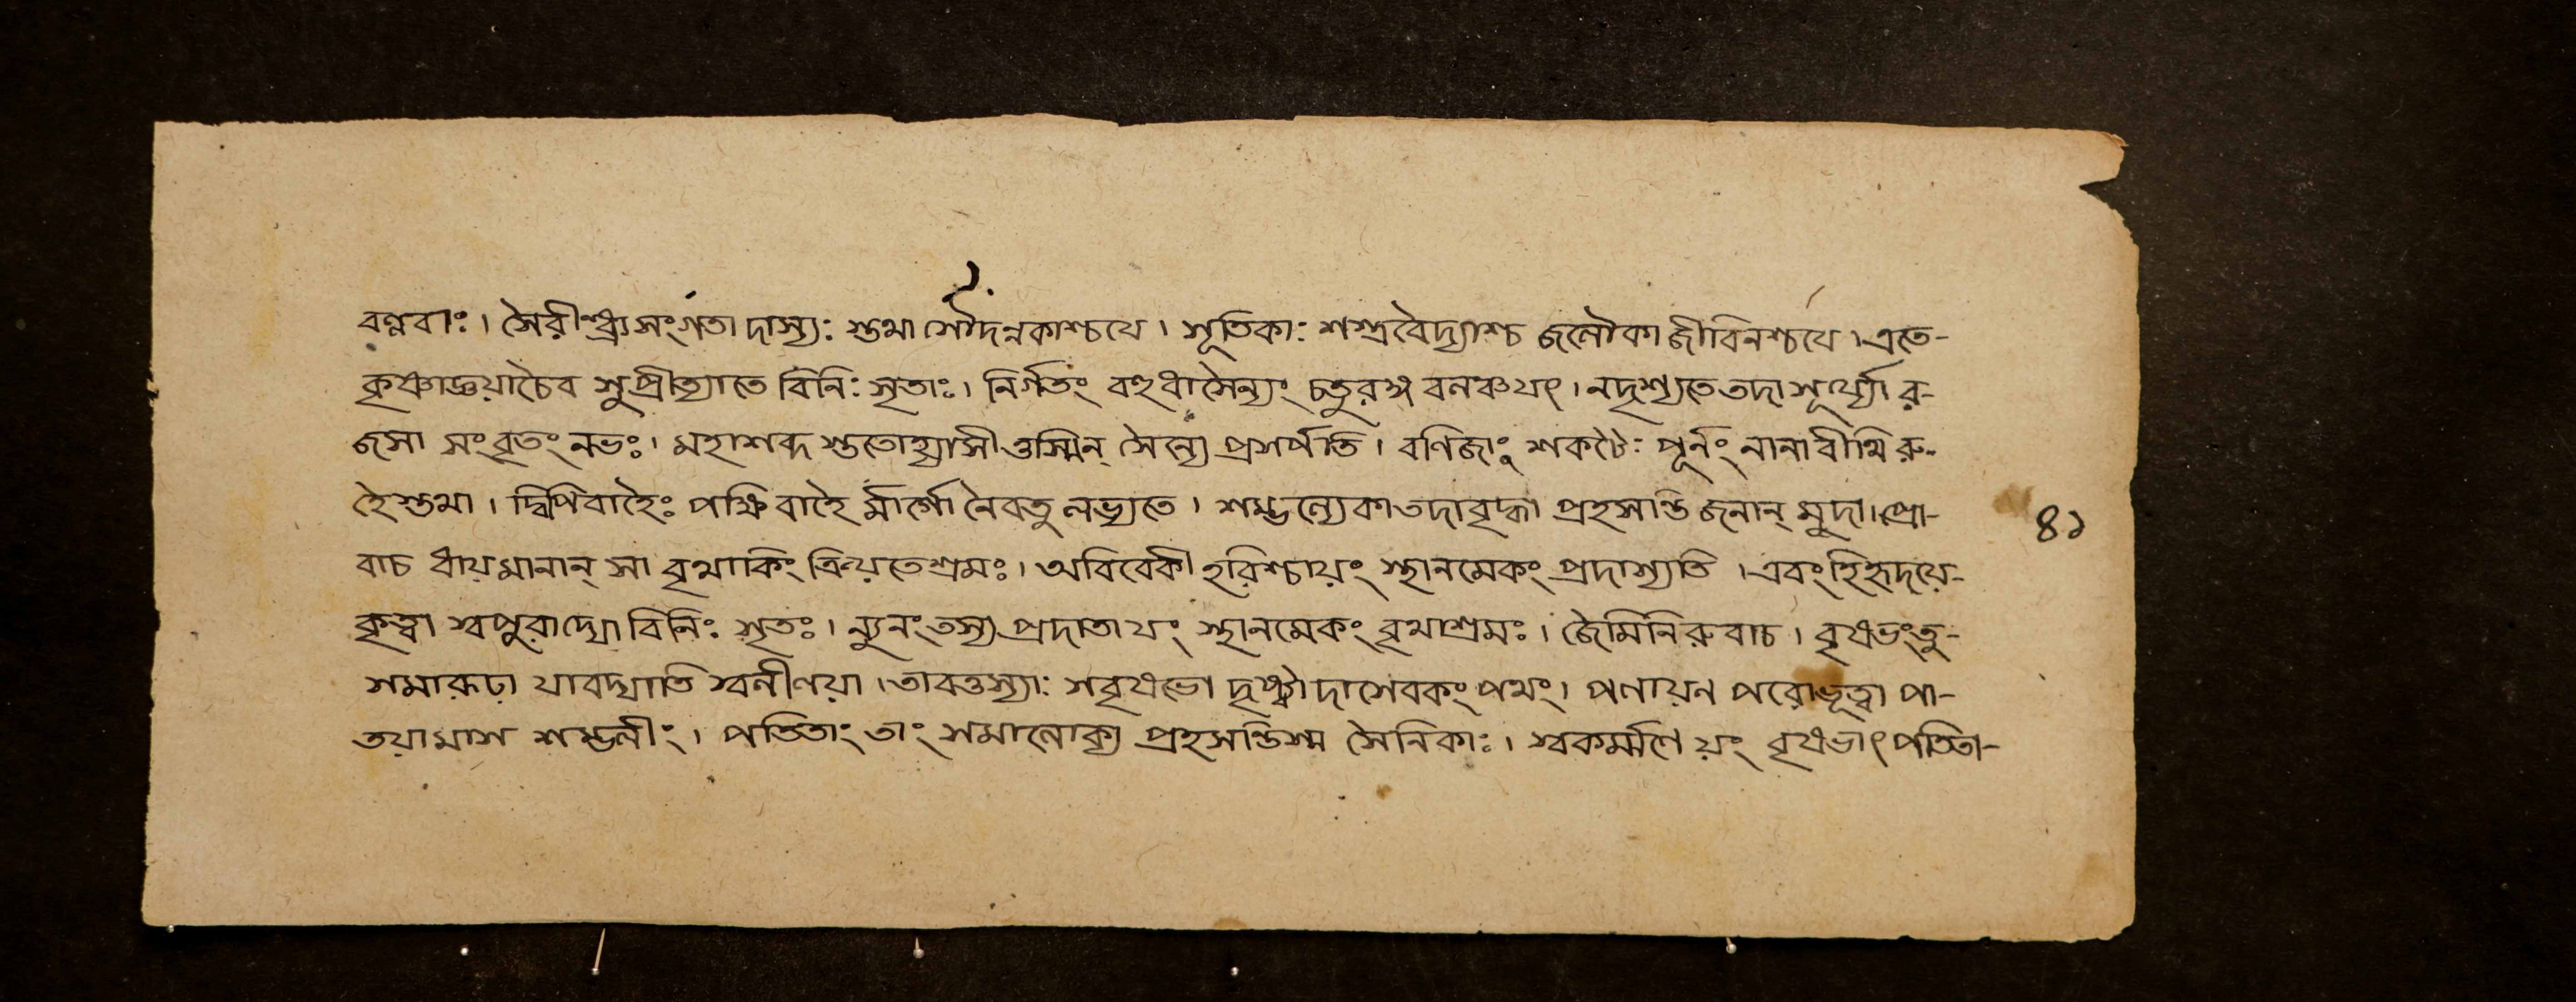 বল্লবাঃ। সৈরীন্ধ্র্যসংগতা দাস্যঃ স্তথা শৌদন্নকাশ্চযে। শূতিকাঃ শস্ত্রবৈদ্যাশ্চ জলৌকা জীবিনশ্চযে। এতে-
কৃষ্ণাজ্ঞয়াচৈব শুপ্রীত্যাতে বিনিঃ সৃতাঃ। নির্গতং বহুধাসৈন্যং চতুরঙ্গ বলঞ্চযৎ। নদৃশ্যতে তদা শূর্য্যো র-
জসা সংবৃতং নভঃ। মহাশব্দ স্ততোহ্যাসীত্তস্মিন্ সৈন্যে প্রশর্পতি। বণিজাং শকটৈঃ পূর্নং নানা বীথি রু-
হৈস্তথা। দ্বিপিবাহৈঃ পক্ষিবাহৈ র্মার্গো নৈবতু লভ্যতে। শম্ভল্যেকা তদাবৃদ্ধা প্রহসান্তি জনান্ মুদা। প্রো-
বাচ ধায়মানান্ সা বৃথাকিং ক্রিয়তেশ্রমঃ। অবিবেকী হরিশ্চায়ং স্থানমেকং প্রদাশ্যতি। এবংহিহৃদয়ে-
কৃত্বা শ্বপুরাদ্যো বিনিঃ শৃতঃ। ন্যুনং তস্য প্রদাতাযং স্থানমেকং বৃথাশ্রমঃ। জৈমিনিরুবাচ। বৃষভংতু-
শমারূঢা যাবদ্যাতি শ্বলীলয়া। তাবত্তস্যাঃ শবৃষভো দৃষ্ট্বৈ দাশেবকং পথং। পলায়ন পরোভূত্বা পা-
তয়ামাশ শম্ভলীং। পতিতাং তাং শমালোক্য প্রহসন্তিশ্ম সৈনিকাঃ। শ্বকর্ম্মণে য়ং বৃষভাৎ পতিতা-
৪১